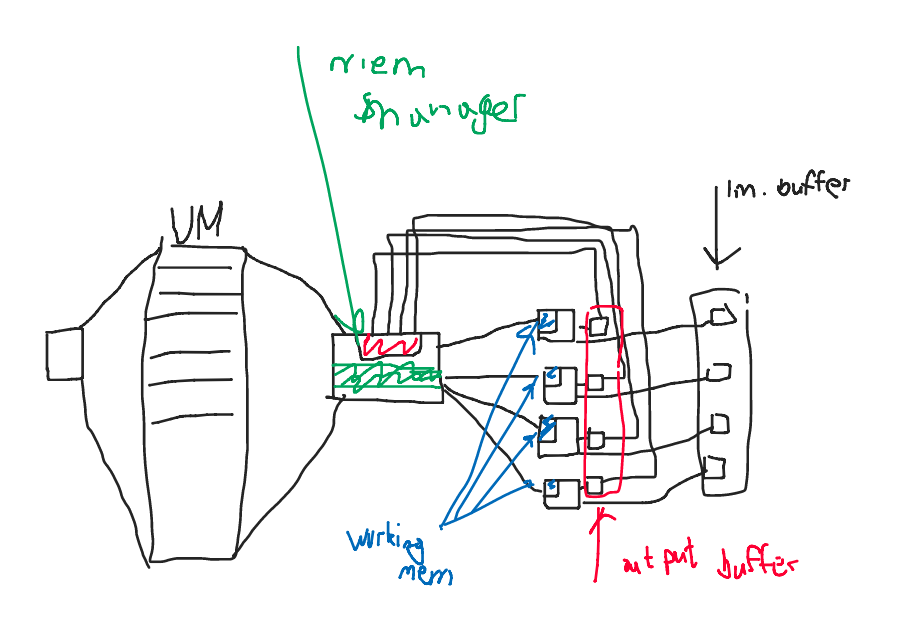 mem
manager
VM
Im. buffer
working
mem
output buffer